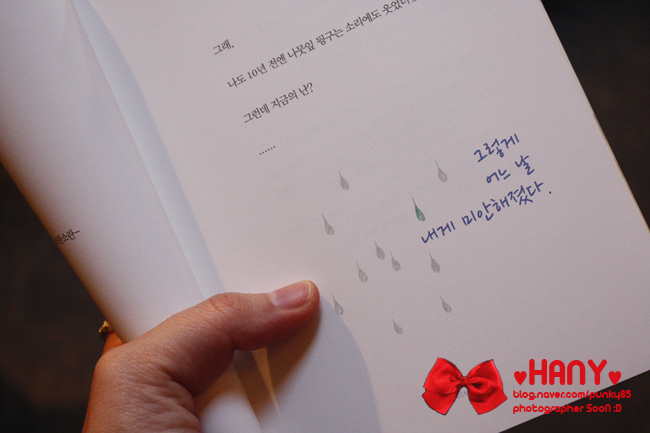 그래,
나도 10년 전엔 나뭇잎 뒹구는 소리에도 웃었다
그런데 지금의 난?
......
그렇게
어느 날
내게 미안해졌다.
♥HANY♥
blog.naver.com/punky85
photographer SooN :D